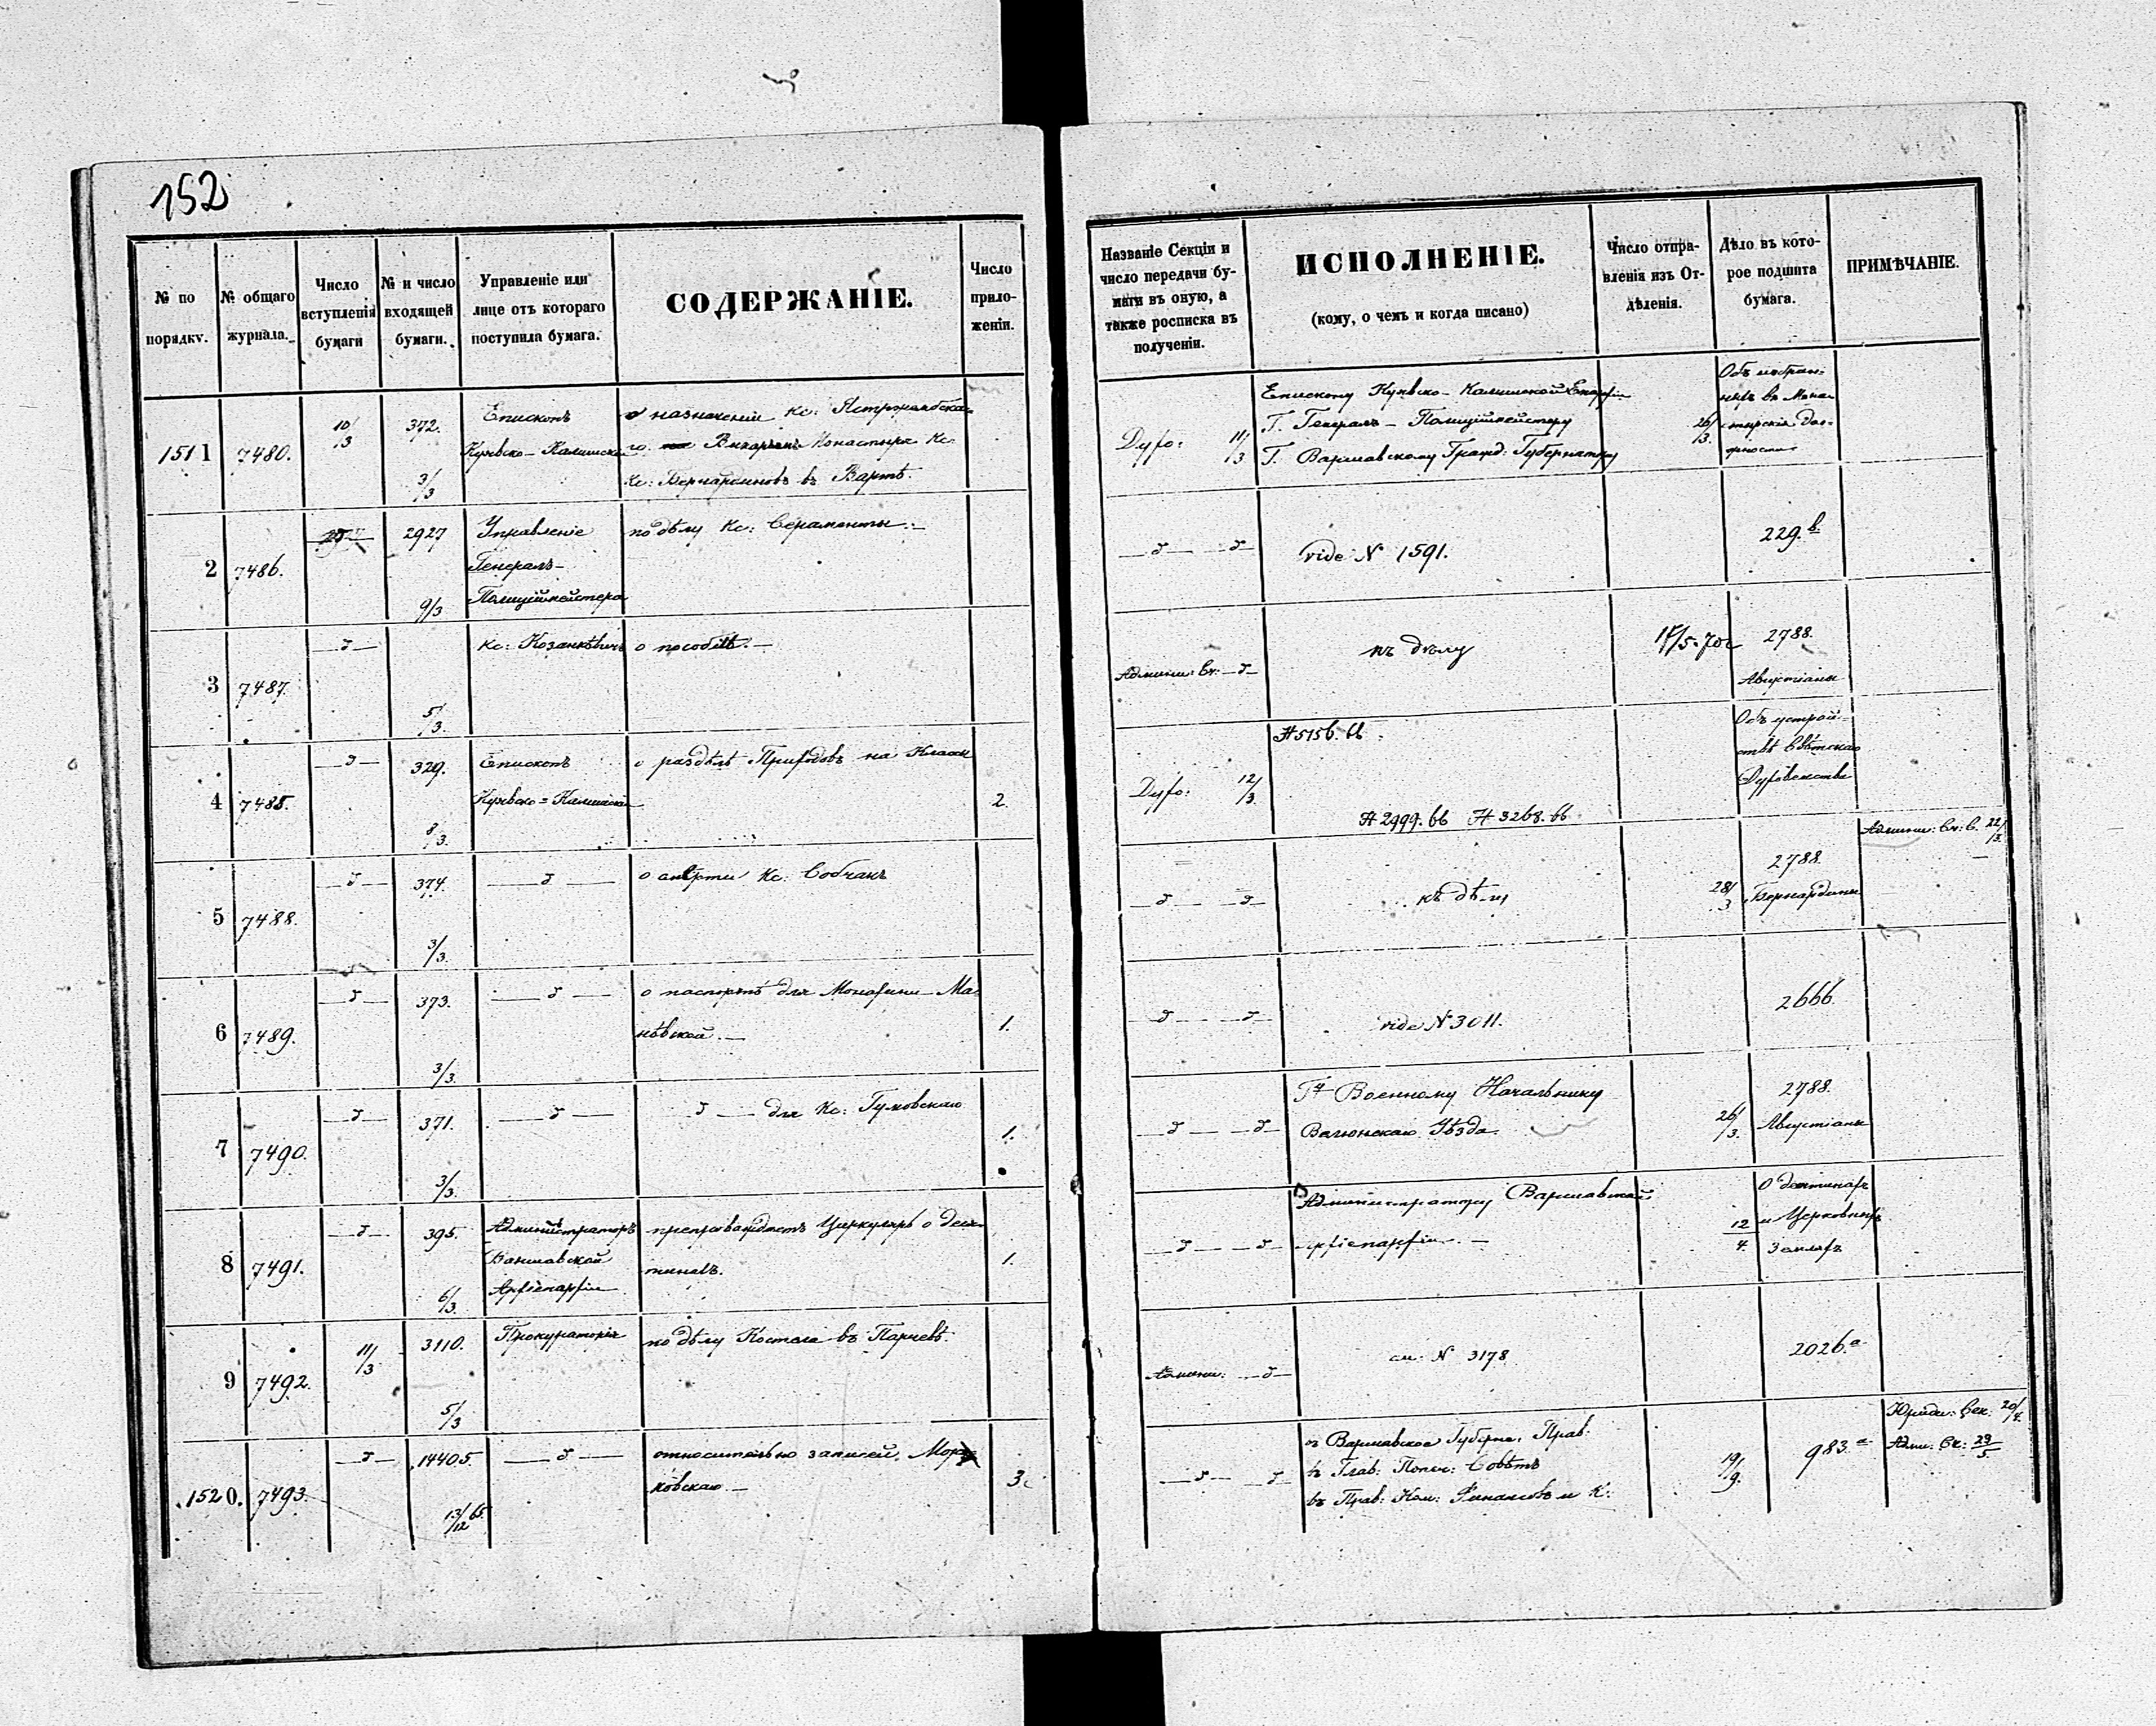 152
№ по
порядку.
№ общаго
журнала.
Число
вступленія
бумаги
№ и число
входящей
бумаги.
Управленіе или
лице отъ котораго
поступила бумага.
СОДЕРЖАНІЕ.
Число
прило-
женіи.
Названіе Секціи и
число передачи бу-
маги въ оную, а
также росписка въ
полученіи.
ИСПОЛНЕНІЕ.
(кому, о чемъ и когда писано)
Число отпра-
вленія изъ От-
дѣленія.
Дѣло въ кото-
рое подшита
бумага.
ПРИМѢЧАНІЕ.
1511
7480.
10/3
372.
3/3
Епископъ
Куявско-Калишскій
о назначеніи Кс: Ястржембска
го Викаріемъ Монастыря Кс
Кс: Бернардиновъ въ Вартѣ.
Духо: 11/3
Епископу Куявско-Калишской Епархіи
Г. Генералъ-Полиціймейстеру
Г. Варшавскому Гражд: Губернатору
26/3.
Объ избран-
2
7486.
2927
9/3
Управленіе
Генералъ-
Полиціймейстера
по дѣлу Кс:
vide № 1591.
229.b.
3
7487.
5/3.
Кс:
о пособіи.—
къ дѣлу
2788.
Августіаны
4
7485.
329.
8/3.
Епископъ
Куявско-Калишскій
о раздѣлѣ Приходовъ на Класы
2.
Духо: 12/3.
№ 5156. 66.
№ 2999. 66 № 3268. 66
Объ устрой-
ствѣ Свѣтскаго
Духовенства
5
7488.
374.
3/3.
о смерти Кс: Собчакъ
къ дѣлу
28/3
2788.
Бернардины
22/3.
6
7489.
373.
3/3.
о паспортѣ для Монахини Ма-
нѣвской.—
1.
vide № 3011.
2666.
7
7490.
371.
3/3.
для Кс: Гумовскаго
1.
Г-ну Военному Начальнику
Велюнскаго Уѣзда.
26/3.
2788.
Августіаны
8
7491.
395.
6/3.
Администраторъ
Варшавской
Архіепархіи
препровождаетъ Циркуляръ о деся-
тинахъ.
1.
Администратору Варшавской
Архіепархіи.—
12/4.
О десятинахъ
и Церковныхъ
Земляхъ
9
7492.
11/3
3110.
5/3
Прокураторія
по дѣлу Костела въ Парчевѣ.
см. № 3178
2026.a
1520.
7493.
14405.
13/12 65.
относительно записей
3.
въ Варшавское Губерн. Прав:
въ Глав: Попеч: Совѣтъ
въ Прав: Ком: Финансовъ и К:
19/9.
983.a
Юриди: Сек. 20/4.
Адми: Ск: 23/5.